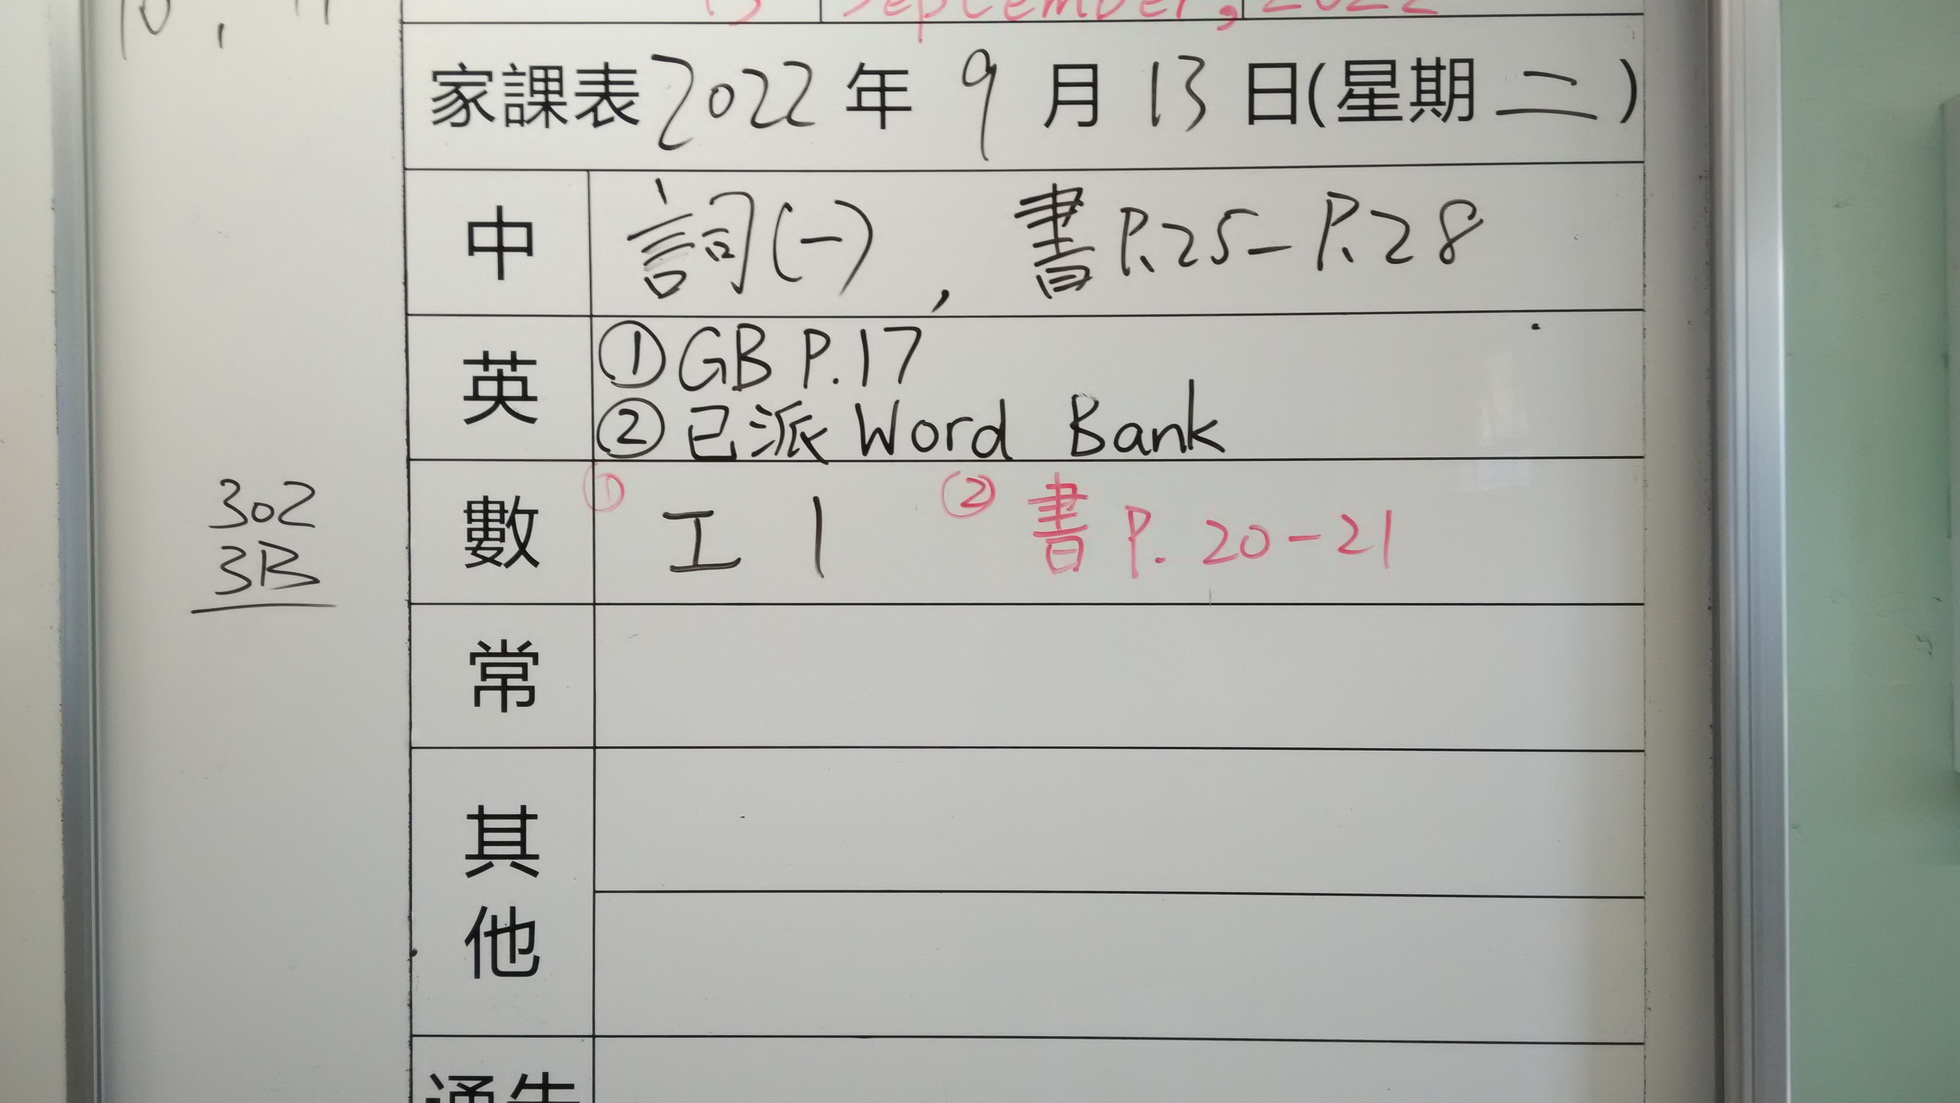 13 September, 2022
家課表 2022 年 9 月 13 日(星期 二)
中 詞(一), 書 P.25-P.28
英 ① GB P.17
② 已派 Word Bank
302
3B
數 ① 工 1 ② 書 P. 20-21
常
其他
通告